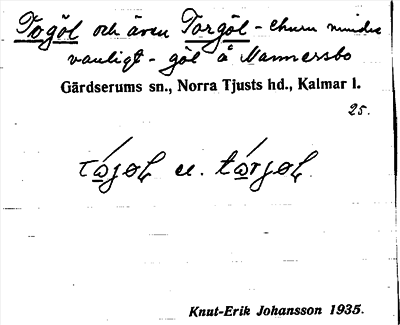 Togöl och även Torgöl - ehuru mindre
vanligt - göl å Mannersbo
Gärdserums sn., Norra Tjusts hd., Kalmar l.
25.
Knut-Erik Johansson 1935.